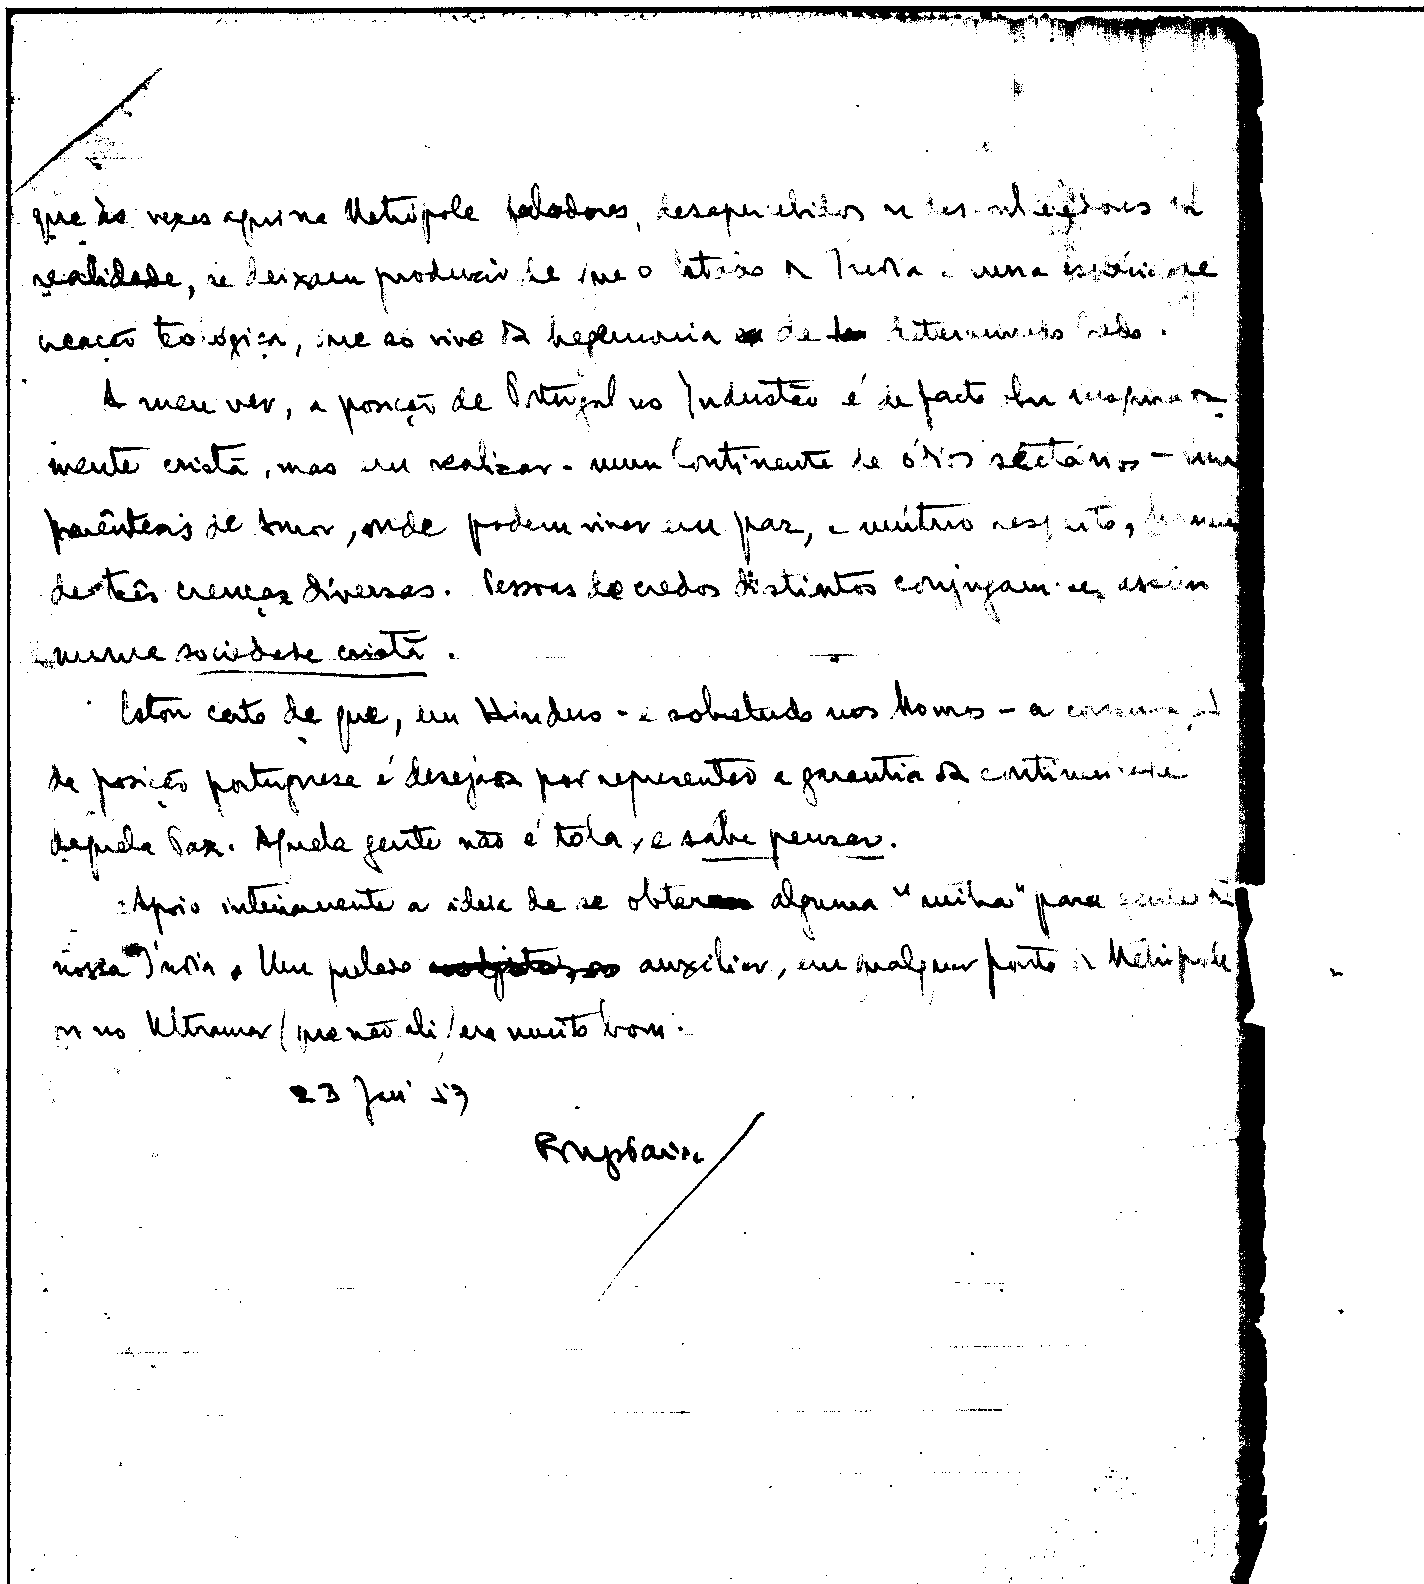 que às vezes aqui na Metrópole faladores, desapercebidos
realidade, se deixam produzir de que o Estado da Índia é uma espécie de
creação teológica, que só vive da hegemonia de determinado Credo.
A meu ver, a posição de Portugal no Industão é de facto
mente cristã, mas em realizar - num Continente de ódios sectários - um
parêntesis de Amor, onde podem viver em paz, e mútuo respeito,
de três crenças diversas. Pessoas de credos distintos conjugam-se, assim
numa sociedade cristã.
Estou certo de que, em Hindus - e sobretudo nos Mouros - a
da posição portuguesa é desejada por representar a garantia da continuidade
daquela Paz. Aquela gente não é tola, e sabe pensar.
Apoio inteiramente a ideia de se obter alguma "milha" para
nossa Índia. Um prelado auxiliar, em qualquer ponto da Metrópole
ou no Ultramar (que não ali) era muito bom.
23 Jan 53